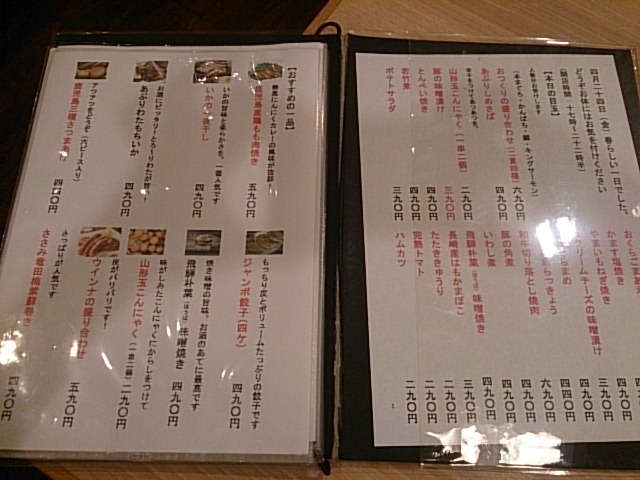 四月二十四日（金）春らしい一日でした。
どうぞお体にはお気を付けください
【開店時間・十七時～二十二時半】
【本日の目玉】
（本まぐろ・かんぱち・鯛・キングサーモン）
おつくりの盛り合わせ（二貫四種） 六九〇円
あぶりしめさば 四九〇円
山形玉こんにゃく（一串二個） 二九〇円
豚の味噌漬け 三九〇円
とんぺい焼き 四九〇円
若竹煮 四九〇円
ポテトサラダ 三九〇円
かます塩焼き
やまいもねぎ焼き 三九〇円
クリームチーズの味噌漬け 四九〇円
らっきょう
和牛切り落とし焼肉 六九〇円
豚の角煮 四九〇円
いわし煮 四九〇円
飛騨朴葉（ほうば）味噌焼き
長崎産はもかまぼこ
たたききゅうり 二九〇円
完熟トマト 二九〇円
ハムカツ 二九〇円
【おすすめの一品】
鮮烈にんにくカレーの風味が抜群！
鹿児島産鶏もも肉焼き 五九〇円
いかの甘味と柔らかさを。一番人気です
いかの一夜干し 四九〇円
お酒にピッタリ！とろ～りわたが旨い！
あぶりわたもちいか 四九〇円
アツアツをどうぞ（六ピース入り）
鹿児島三種さつまあげ 四九〇円
もっちり皮とボリュームたっぷりの餃子です
ジャンボ餃子（四ケ） 四九〇円
焼き味噌の旨味。お酒のあてに最高です
飛騨朴葉（ほうば）味噌焼き 四九〇円
味がしみたこんにゃくにからしをつけて
山形玉こんにゃく（一串二個） 二九〇円
皮がパリパリです！
ウインナの盛り合わせ 五九〇円
さっぱりが人気です
ささみ竜田梅紫蘇巻き 四九〇円